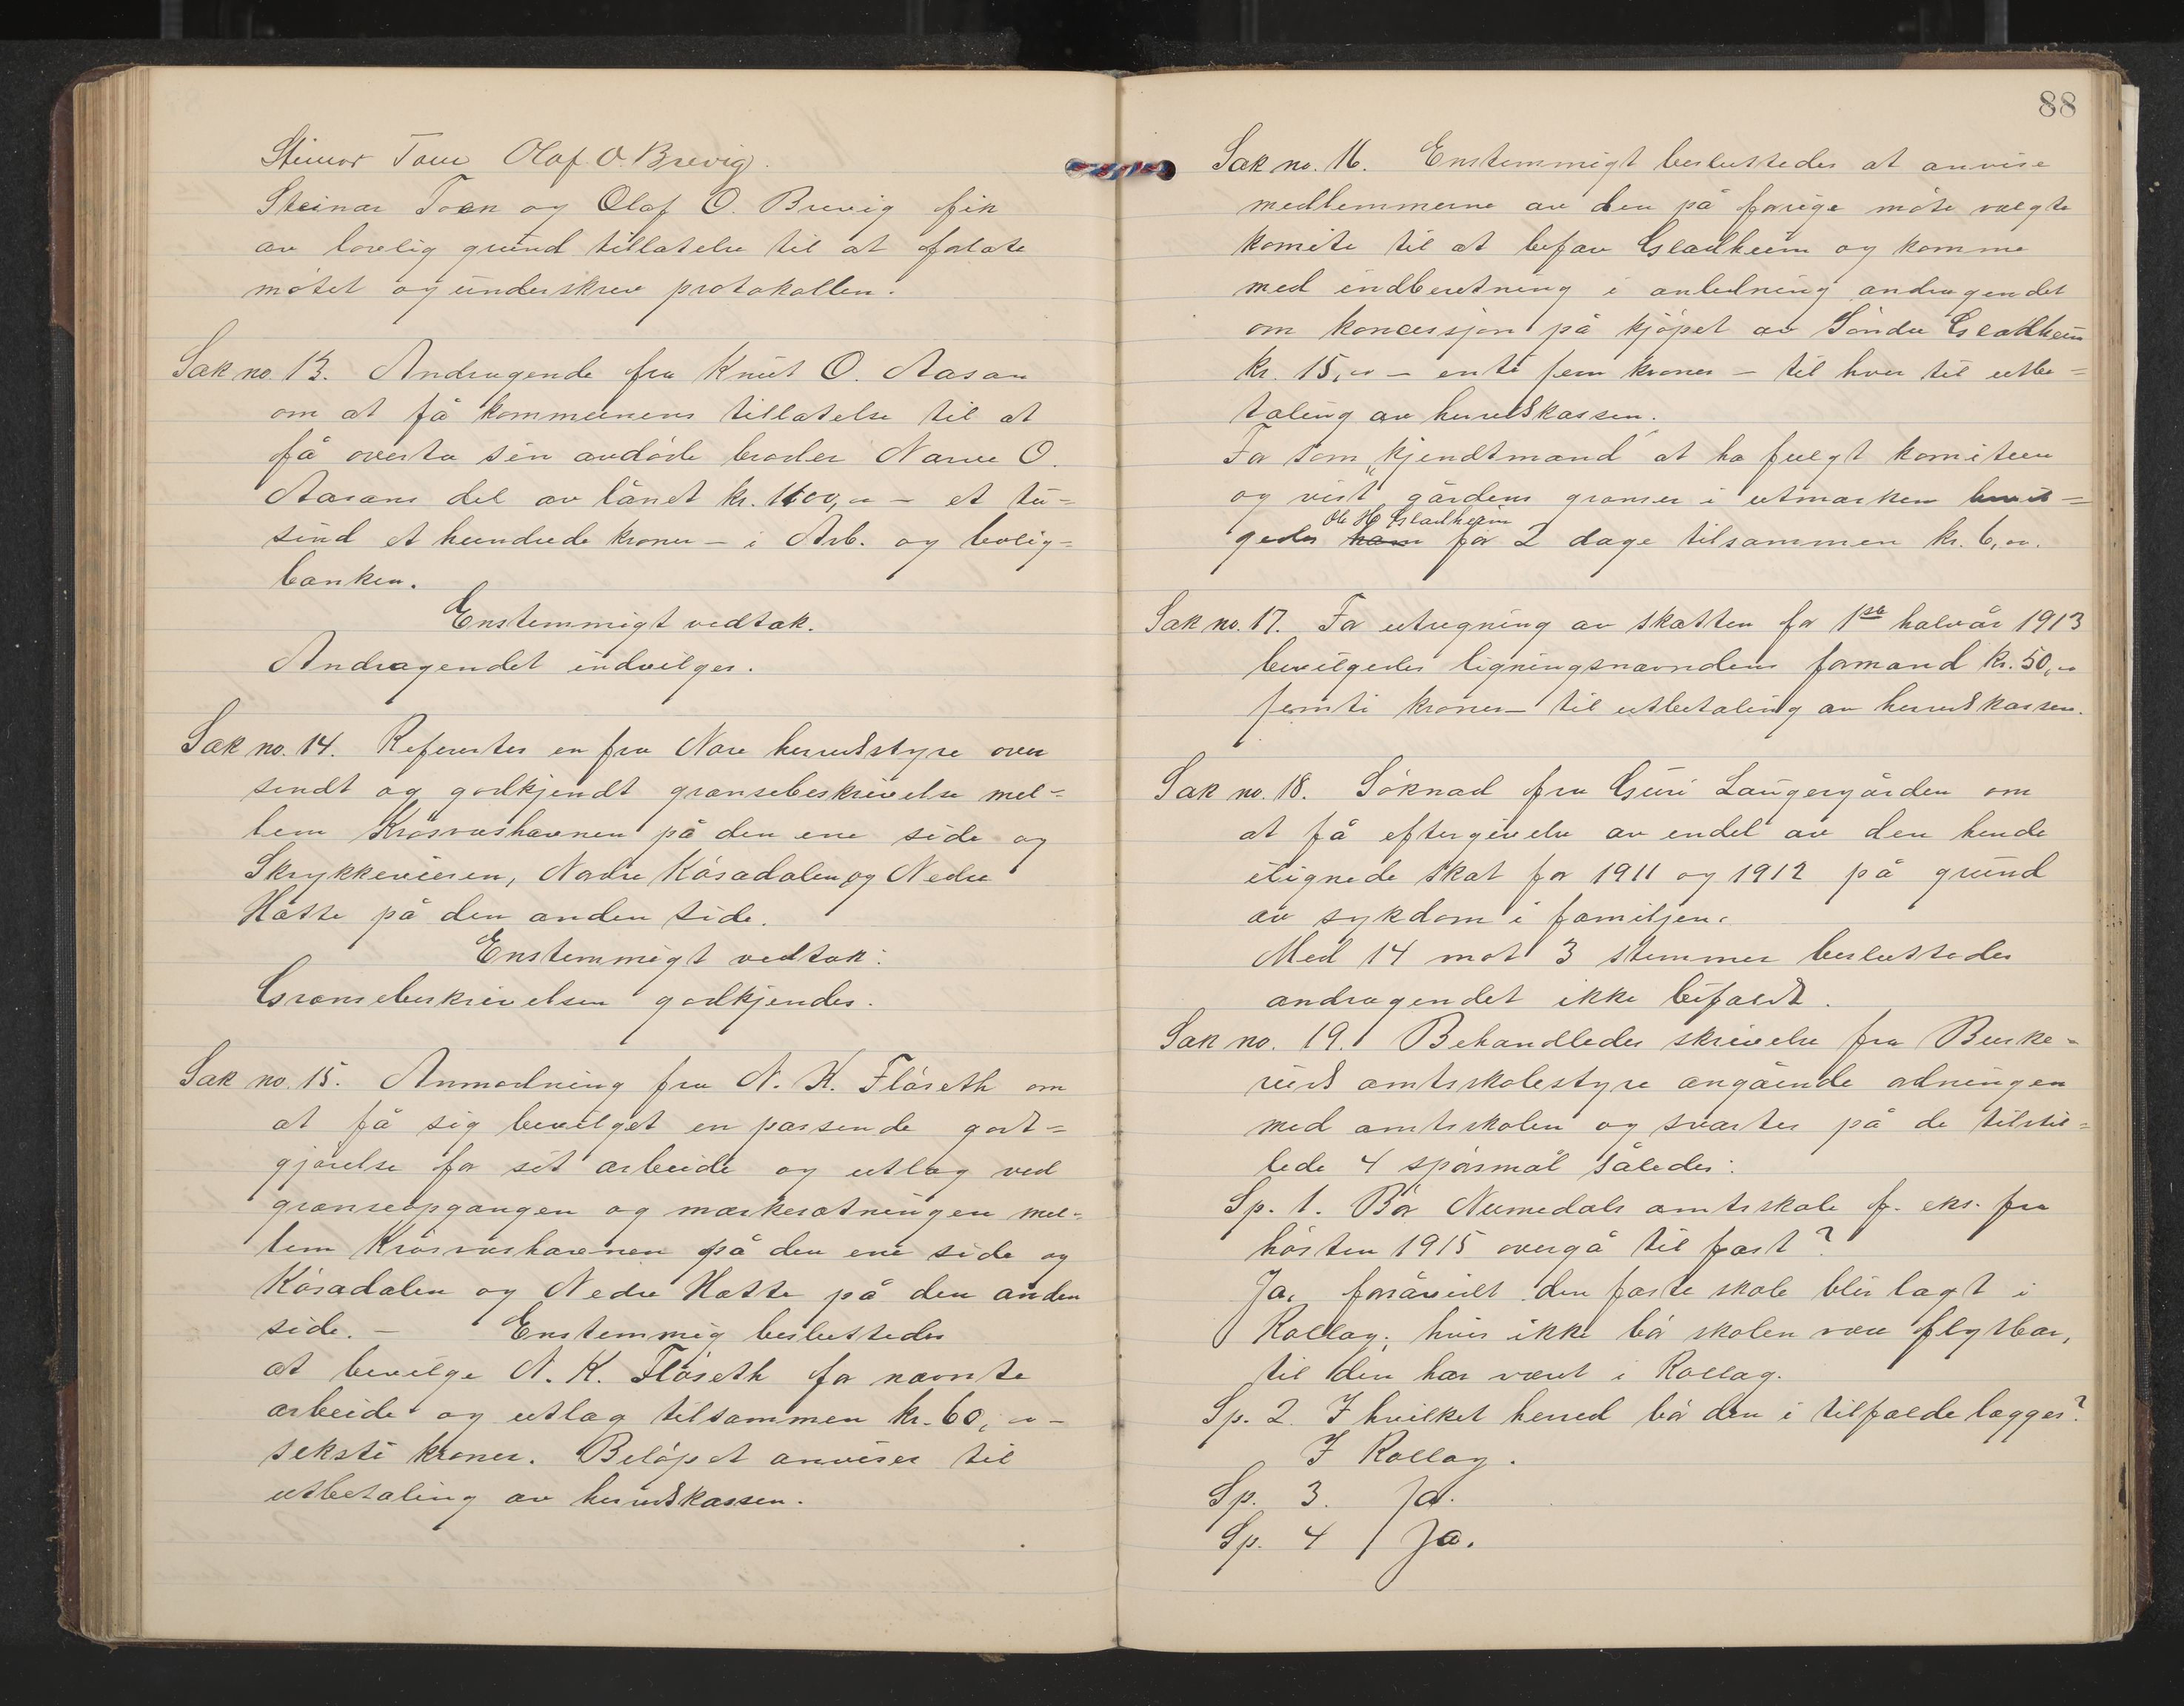 Steinar Toen Olaf O. Brevig.
Steinar Toen og Olaf O. Brevig fik
av lovlig grund tillatelse til at forlate
møtet og underskrev protokollen.
Sak no. 13. Andragende fra Knut O. Aasan
om at få kommunens tillatelse til at
få overta sin avdøde broder Narve O.
Aasans del av lånet kr. 1100,00 – et tu=
sind et hundrede kroner – i Arb. og bolig=
banken.
Enstemmigt vedtak.
Andragendet indvilges.
Sak no. 14. Refertes en fra Nore herredsstyre over
sendt og godkjendt grænsebeskrivelse mel=
lem Krosvashavnen på den ene side og
Skrykkevieren, Nordre Kåsadalen og Nedre
Hotte på den anden side.
Enstemmigt vedtak:
Grænsebeskrivelsen godkjendes.
Sak no. 15. Anmodning fra N. K. Flåseth om
at få sig bevilget en passende godt=
gjørelse for sit arbeide og utlæg ved
grænseopgangen og mærkesætningen mel=
lem Krosvashavnen på den ene side og
Kåsadalen og Nedre Hotte på den anden
side. – Enstemmig besluttedes
at bevilge N. K. Flåseth for nævnte
arbeide og utlæg tilsammen kr. 60,00 –
seksti kroner. Beløpet anvises til
utbetaling av herredskassen.
88
Sak no. 16. Enstemmigt besluttedes at anvise
medlemmerne av den på forrige møte valgte
komite til at befare Gladheim og komme
med indberetning i anledning andragendet
om koncessjon på kjøpet av Søndre Gladheim
kr. 15,00 – enti fem kroner – til hver til utbe=
taling av herredskassen.
For som „kjendtmand" at ha fulgt komiteen
og vist gårdens grænser i utmarken bevil=
Ole H. Gladheim
gedes ham for 2 dage tilsammen kr. 6,00.
Sak no. 17. For utregning av skatten for 1ste halvår 1913
bevilgedes ligningsnævndens formand kr. 50,00
femti kroner – til utbetaling av herredskassen.
Sak no. 18. Søknad fra Guri Laugergården om
at få eftergivelse av endel av den hende
ilignede skat for 1911 og 1912 på grund
av sykdom i familjen.
Med 14 mot 3 stemmer besluttedes
andragendet ikke bifaldt.
Sak no. 19. Behandledes skrivelse fra Buske=
ruds amtsskolestyre angående ordningen
med amtsskolen og svartes på de tilstil=
lede 4 spørsmål således:
Sp. 1. Bør Numedals amtsskole f. eks. fra
høsten 1915 overgå til fast?
Ja, foråvidt den faste skole blir lagt i
Rollag; hvis ikke bør skolen være flytbar,
til den har været i Rollag.
Sp. 2. I hvilket herred bør den i tilfælde lægges?
I Rollag.
Sp. 3. Ja.
Sp. 4 Ja.